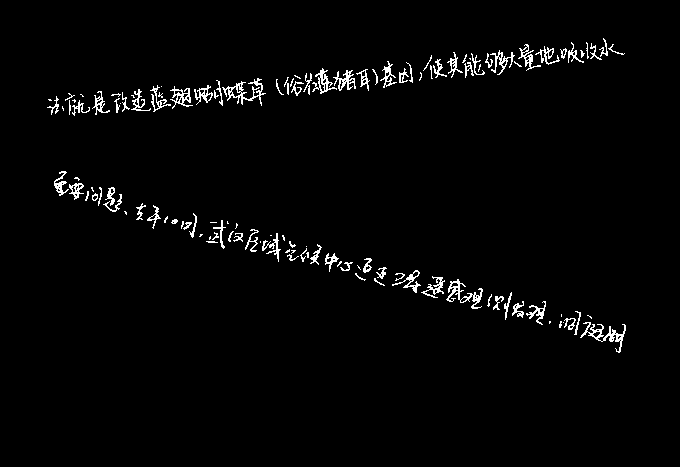 法就是改造蓝翅蝴蝶草（俗名蓝猪耳）基因，使其能够大量地吸收水
重要问题、去年10月，武汉区域气候中心通过卫星遥感观测发现，洞庭湖